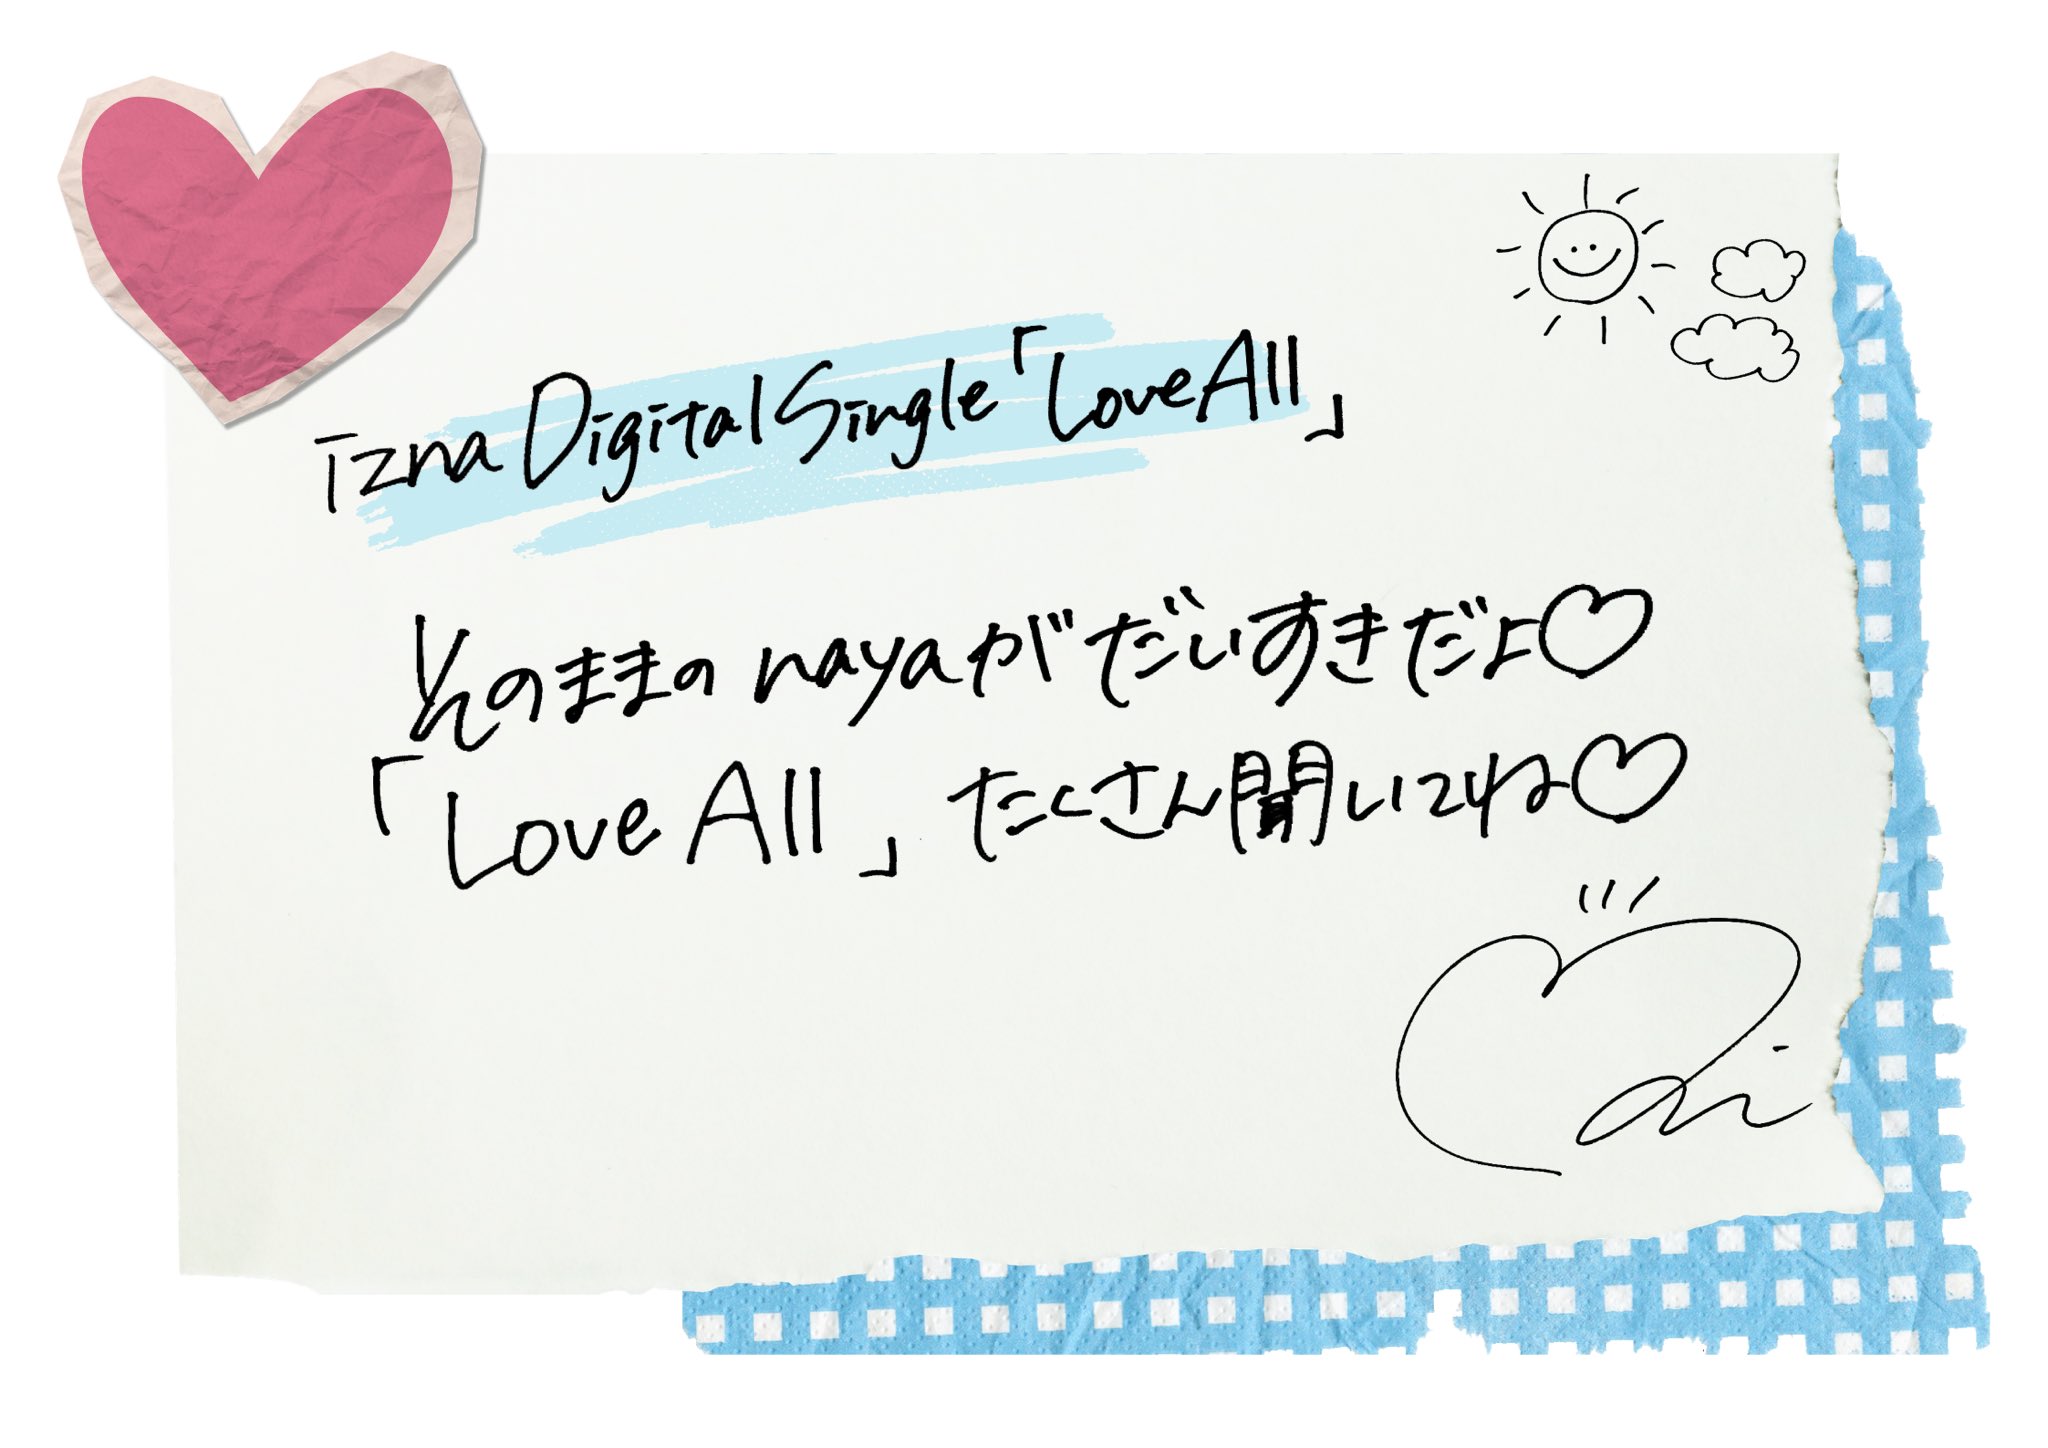 izna Digital Single「Love All」
そのままの nayaがだいすきだよ♡
「Love All」たくさん聞いてね♡
Mai